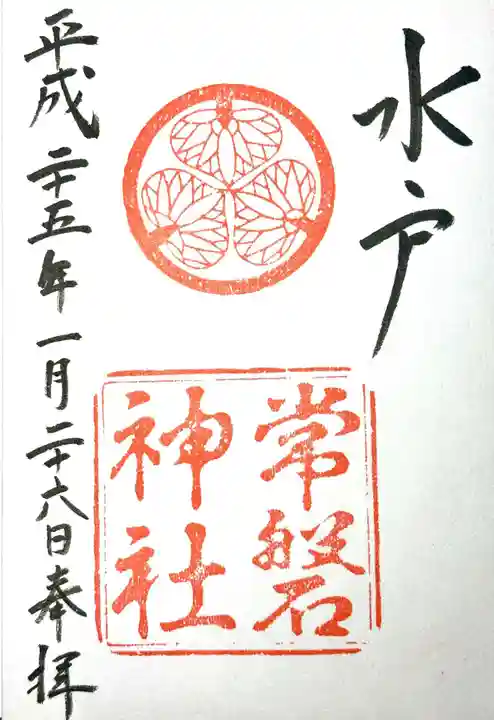 水戸
常磐
神社
平成二十五年一月二十六日奉拝